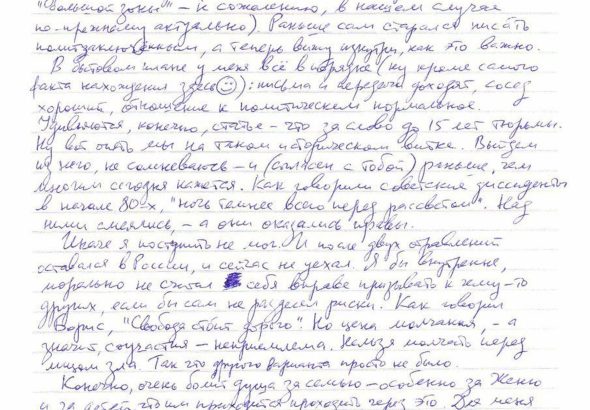 "большой зоны" – к сожалению, в нашем случае
по-прежнему актуально). Раньше сам старался писать
политзаключённым, а теперь вижу изнутри, как это важно.
В бытовом плане у меня всё в порядке (ну кроме самого
факта нахождения здесь☺): письма и передачи доходят, сосед
хороший, отношение к политическим нормальное.
Удивляются, конечно, статье – что за слово до 15 лет тюрьмы.
Ну вот опять мы на таком историческом витке. Выйдем
из него, не сомневаюсь – и (согласен с тобой) раньше, чем
многим сегодня кажется. Как говорили советские диссиденты
в начале 80-х, "ночь темнее всего перед рассветом". Над
ними смеялись, – а они оказались правы.
Иначе я поступить не мог. И после двух отравлений
оставался в России, и сейчас не уехал. Я бы внутренне,
морально не считал себя вправе призывать к чему-то
других, если бы сам не разделял риски. Как говорил
Борис, "Свобода стоит дорого". Но цена молчания, – а
значит, соучастия – неприемлема. Нельзя молчать перед
лицом зла. Так что другого варианта просто не было.
Конечно, очень болит душа за семью – особенно за Женю
и за детей, что им приходится проходить через это. Для меня